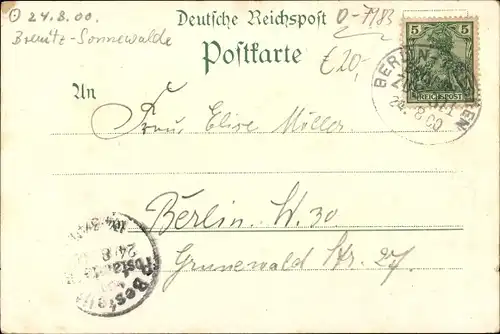 24.8.00.
Brenitz-Sonnewalde
Deutsche Reichspost
Postkarte
D-7983
£20,-
5
REICHSPOST
BERLIN
24.8.00
An
Frau Elise Müller
Berlin W. 30
Grunewald Str. 27.
Bestellt
Postamt
24/8